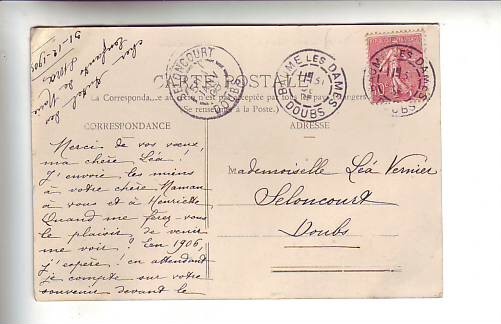 CARTE POSTALE
La Correspondance au recto n'est pas acceptée par tous les pays étrangers
(Se renseigner à la Poste.)
CORRESPONDANCE
ADRESSE
Merci de vos vœux,
ma chère Léa!
J'envoie les miens
à votre chère Maman
à vous et à Henriette
Quand me ferez-vous
le plaisir de venir
me voir? En 1906,
j'espère! en attendant
je compte sur votre
souvenir devant le
cher
31-12-1905
Mademoiselle Léa Vernier
Seloncourt
Doubs
SELONCOURT
DOUBS
BAUME LES DAMES
DOUBS
BAUME LES DAMES
DOUBS
10